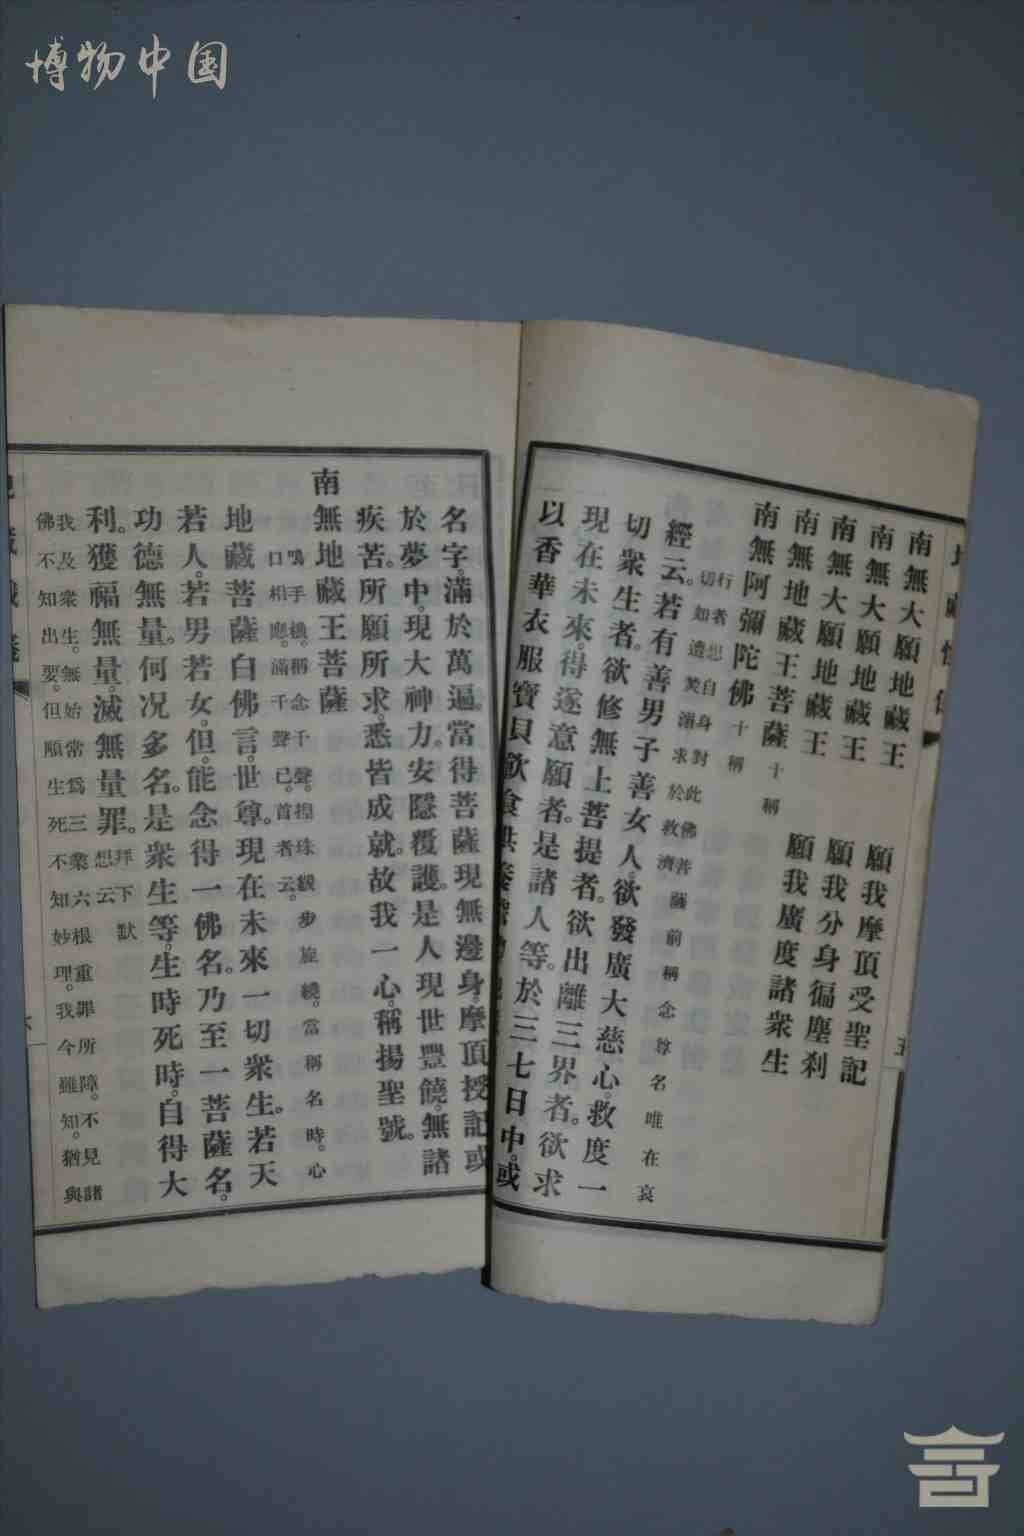 博物中国
南無大願地藏王 願我摩頂受聖記
南無大願地藏王 願我分身徧塵刹
南無大願地藏王 願我廣度諸衆生
南無地藏王菩薩十稱
南無阿彌陀佛十稱
行者想自身對此佛菩薩前稱念尊名唯在哀
切如遭焚溺求於救濟
經云。若有善男子善女人。欲發廣大慈心。救度一
切衆生者。欲修無上菩提者。欲出離三界者。欲求
現在未來。得遂意願者。是諸人等。於三七日中。或
以香華衣服寶貝飲食供養
名字滿於萬遍。當得菩薩現無邊身。摩頂授記。或
於夢中。現大神力。安隱覆護。是人現世豐饒。無諸
疾苦。所願所求。悉皆成就。故我一心。稱揚聖號。
南無地藏王菩薩
鳴手機。稱念千聲。捏珠緩步旋繞。當稱名時。心
口相應。滿千聲已。首者云。
地藏菩薩白佛言。世尊。現在未來一切衆生。若天
若人。若男若女。但能念得一佛名。乃至一菩薩名。
功德無量。何况多名。是衆生等。生時死時。自得大
利。獲福無量。滅無量罪。拜下默
想云
我及衆生。無始常爲三業六根重罪所障。不見諸
佛不知出要。但順生死不知妙理。我今雖知。猶與